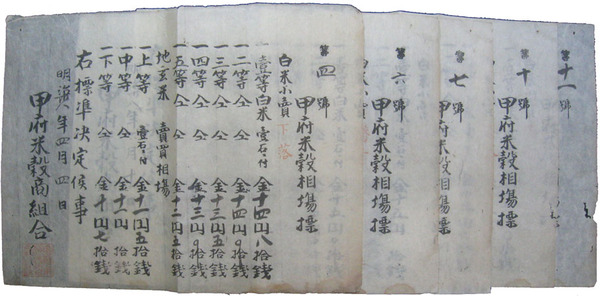 第十一號
第十號
甲府米穀相場摽
第七號
甲府米穀相場摽
第六號
甲府米穀相場摽
第四號
甲府米穀相場摽
白米小賣 下落
一壹等白米 壹石ニ付 金十四円八拾銭
一二等仝 仝 金十四円〇拾銭
一三等仝 仝 金十三円五拾銭
一四等仝 仝 金十三円〇拾銭
一五等仝 仝 金十二円五拾銭
地玄米 賣買相場
一上等 壹石ニ付 金十一円五拾銭
一中等 仝 金十一円 拾銭
一下等 仝 金十円七拾銭
右標準决定候事
年四月四日
甲府米穀商組合